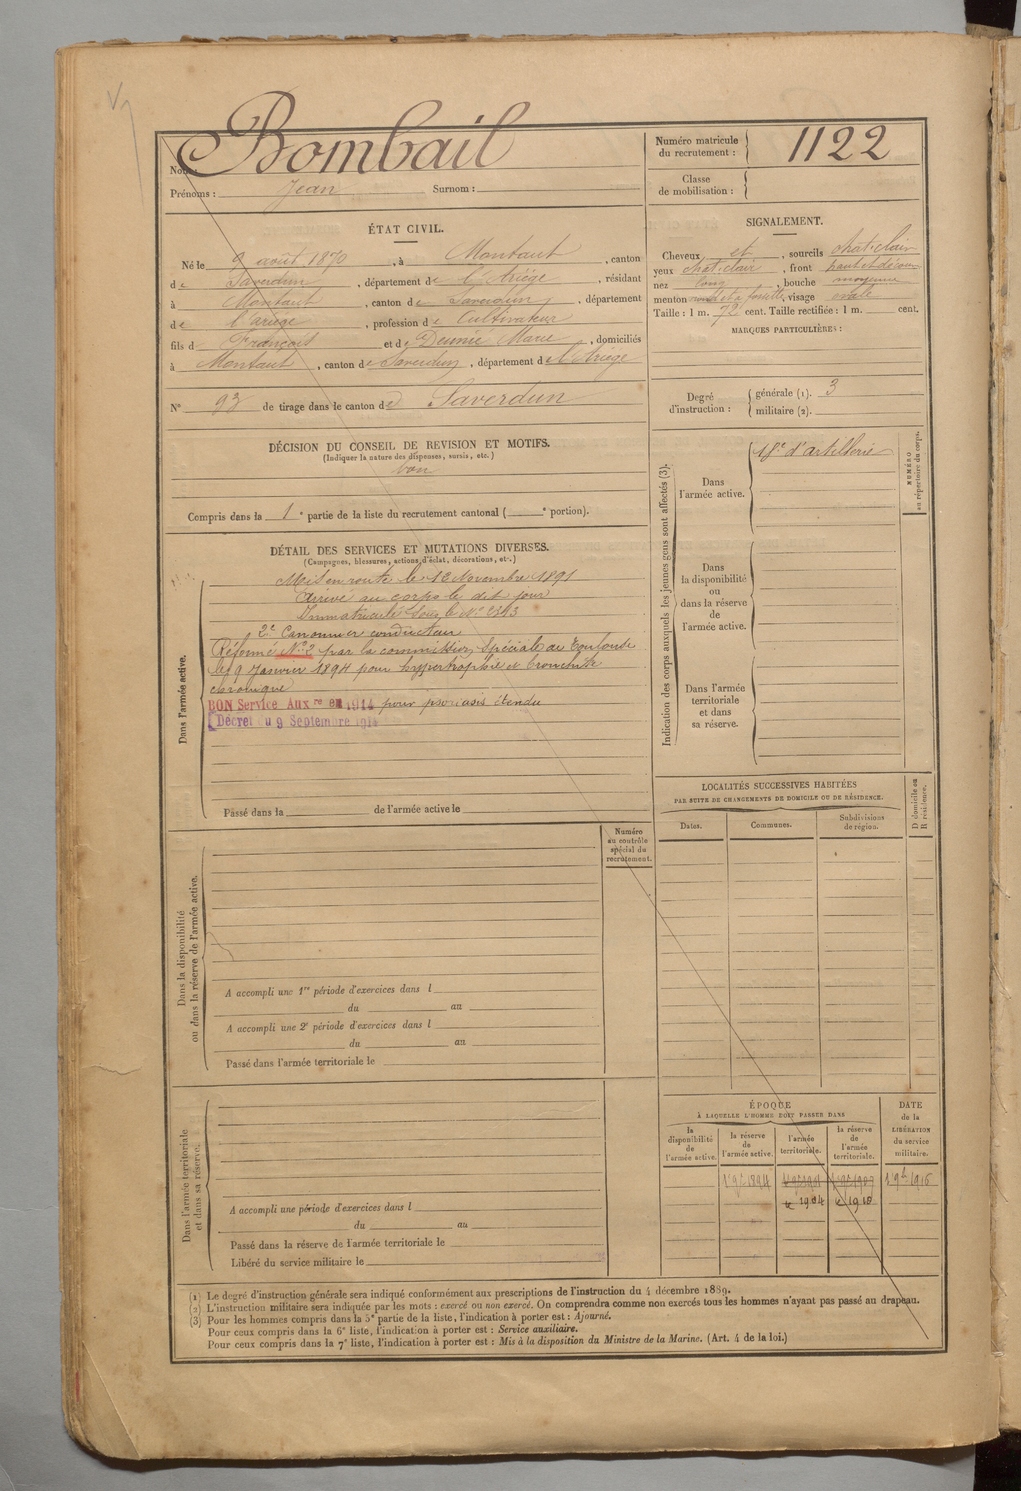 Bombail
Nom :
Prénoms : Jean Surnom :
Numéro matricule du recrutement : 1122
Classe de mobilisation :
ÉTAT CIVIL.
Né le 9 août 1870, à Montaut, canton
de Saverdun, département de l'Ariége, résidant
à Montaut, canton de Saverdun, département
de l'ariége, profession de Cultivateur
fils de François et de Marie, domiciliés
à Montaut, canton de Saverdun, département de l'Ariége
N° 93 de tirage dans le canton de Saverdun
SIGNALEMENT.
Cheveux et, sourcils chat-clair
yeux chat-clair, front haut et décou
nez long, bouche moyenne
menton rond et à fossette, visage ovale
Taille : 1 m. 72 cent. Taille rectifiée : 1 m. cent.
MARQUES PARTICULIÈRES :
Degré d'instruction : générale (1). 3
militaire (2).
DÉCISION DU CONSEIL DE REVISION ET MOTIFS.
(Indiquer la nature des dispenses, sursis, etc.)
bon
Compris dans la 1e partie de la liste du recrutement cantonal ( e portion).
DÉTAIL DES SERVICES ET MUTATIONS DIVERSES.
(Campagnes, blessures, actions d'éclat, décorations, etc.)
Dans l'armée active.
Mis en route le 12 Novembre 1891
Arrivé au corps le dit jour
Immatriculé sous le N°
2e Canonnier conducteur
Réformé N° 2 par la commission spéciale de Toulouse
le 9 Janvier 1894 pour hypertrophie et bronchite
chronique
BON Service Auxre en 1914 pour psoriasis étendu
Décret du 9 Septembre 1914
Passé dans la de l'armée active le
Indication des corps auxquels les jeunes gens sont affectés (3).
Dans l'armée active.
18e d'artillerie
NUMÉRO au répertoire du corps.
Dans la disponibilité ou dans la réserve de l'armée active.
Dans l'armée territoriale et dans sa réserve.
LOCALITÉS SUCCESSIVES HABITÉES
PAR SUITE DE CHANGEMENTS DE DOMICILE OU DE RÉSIDENCE.
D domicile ou R résidence.
Dates. Communes. Subdivisions de région.
Numéro au contrôle spécial du recrutement.
Dans la disponibilité ou dans la réserve de l'armée active.
A accompli une 1re période d'exercices dans l
du au
A accompli une 2e période d'exercices dans l
du au
Passé dans l'armée territoriale le
Dans l'armée territoriale et dans sa réserve.
A accompli une période d'exercices dans l
du au
Passé dans la réserve de l'armée territoriale le
Libéré du service militaire le
ÉPOQUE
À LAQUELLE L'HOMME DOIT PASSER DANS
DATE de la LIBÉRATION du service militaire.
la disponibilité de l'armée active. la réserve de l'armée active. l'armée territoriale. la réserve de l'armée territoriale.
1 9bre 1894 1 9bre 1916
1904 1910
(1) Le degré d'instruction générale sera indiqué conformément aux prescriptions de l'instruction du 4 décembre 1889.
(2) L'instruction militaire sera indiquée par les mots : exercé ou non exercé. On comprendra comme non exercés tous les hommes n'ayant pas passé au drapeau.
(3) Pour les hommes compris dans la 5e partie de la liste, l'indication à porter est : Ajourné.
Pour ceux compris dans la 6e liste, l'indication à porter est : Service auxiliaire.
Pour ceux compris dans la 7e liste, l'indication à porter est : Mis à la disposition du Ministre de la Marine. (Art. 4 de la loi.)